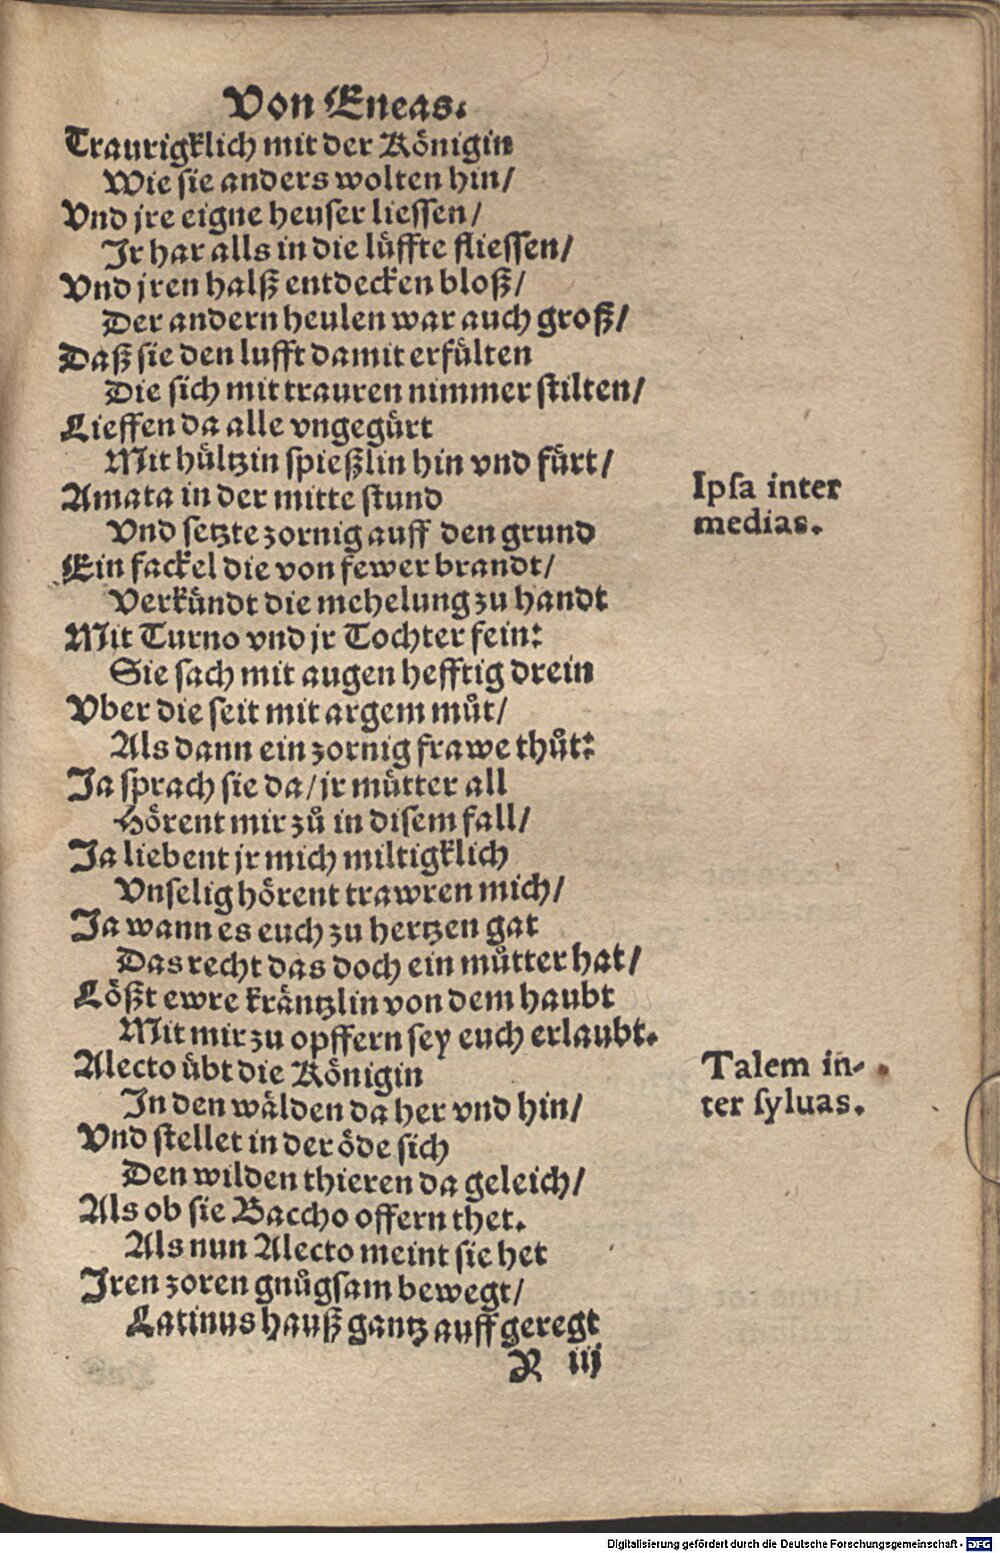 Von Eneas.
Traurigklich mit der Königin
Wie sie anders wolten hin/
Vnd jre eigne heuser liessen/
Ir har alls in die lüffte fliessen/
Vnd jren halß entdecken bloß/
Der andern heulen war auch groß/
Daß sie den lufft damit erfülten
Die sich mit trauren nimmer stilten/
Lieffen da alle vngegürt
Mit hültzin spießlin hin vnd fürt/
Amata in der mitte stund
Ipsa inter
medias.
Vnd setzte zornig auff den grund
Ein fackel die von fewer brandt/
Verkündt die mehelung zu handt
Mit Turno vnd jr Tochter fein:
Sie sach mit augen hefftig drein
Vber die seit mit argem muͦt/
Als dann ein zornig frawe thuͦt:
Ja sprach sie da/ jr mütter all
Hörent mir zuͦ in disem fall/
Ja liebent jr mich miltigklich
Vnselig hörent trawren mich/
Ja wann es euch zu hertzen gat
Das recht das doch ein muͦtter hat/
Lößt ewre kräntzlin von dem haubt
Mit mir zu opffern sey euch erlaubt.
Alecto übt die Königin
Talem in-
ter syluas.
In den wälden da her vnd hin/
Vnd stellet in der öde sich
Den wilden thieren da geleich/
Als ob sie Baccho offern thet.
Als nun Alecto meint sie het
Iren zoren gnuͦgsam bewegt/
Latinus hauß gantz auff geregt
R iij
Digitalisierung gefördert durch die Deutsche Forschungsgemeinschaft - DFG